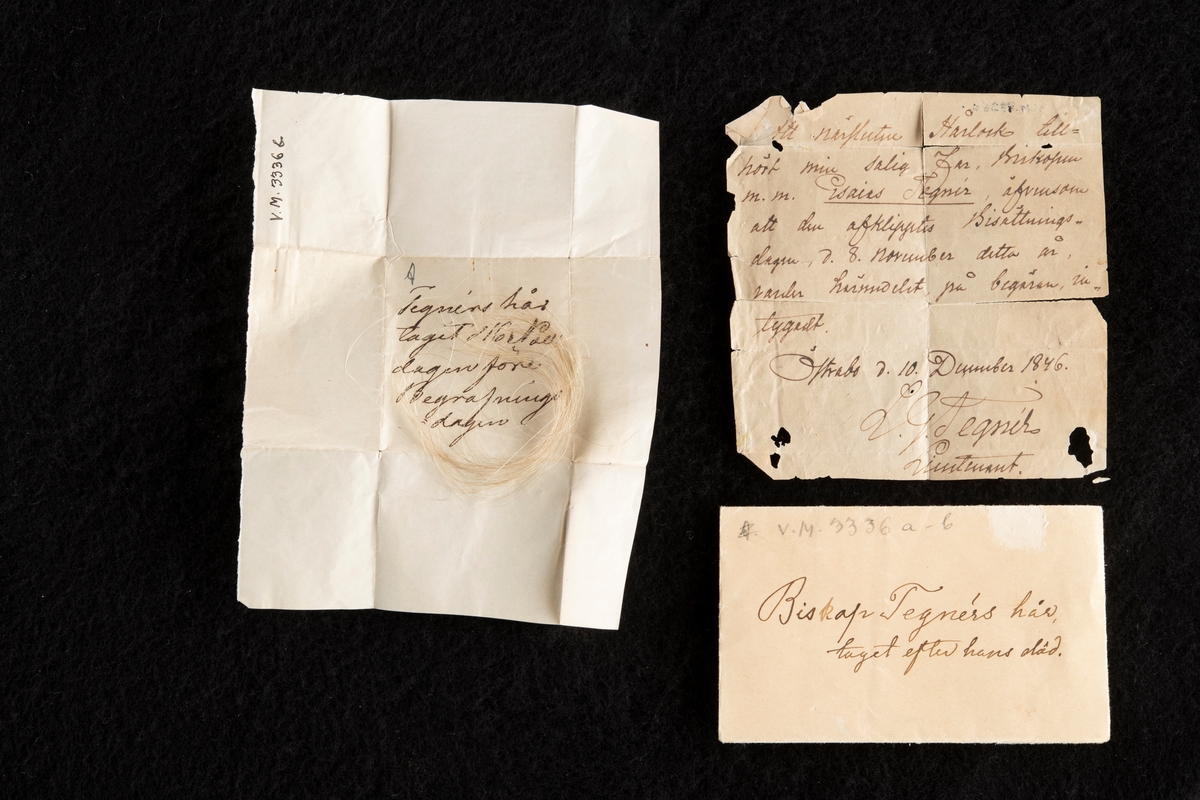 V.M. 3336 b
Tegnérs hår
taget
dagen före
Begrafnings
dagen
Att närslutne Hårlock till-
hört min salig Far, Biskopen
m.m. Esaias Tegnér, äfvensom
att den afklipptes Bisättnings-
dagen, d. 8. November detta år,
varder härmedelst, på begäran, in-
tygadt.
Östrabo d. 10. December 1846.
Tegnér
Lieutenant.
V.M. 3336 a-b
Biskop Tegnérs hår,
taget efter hans död.